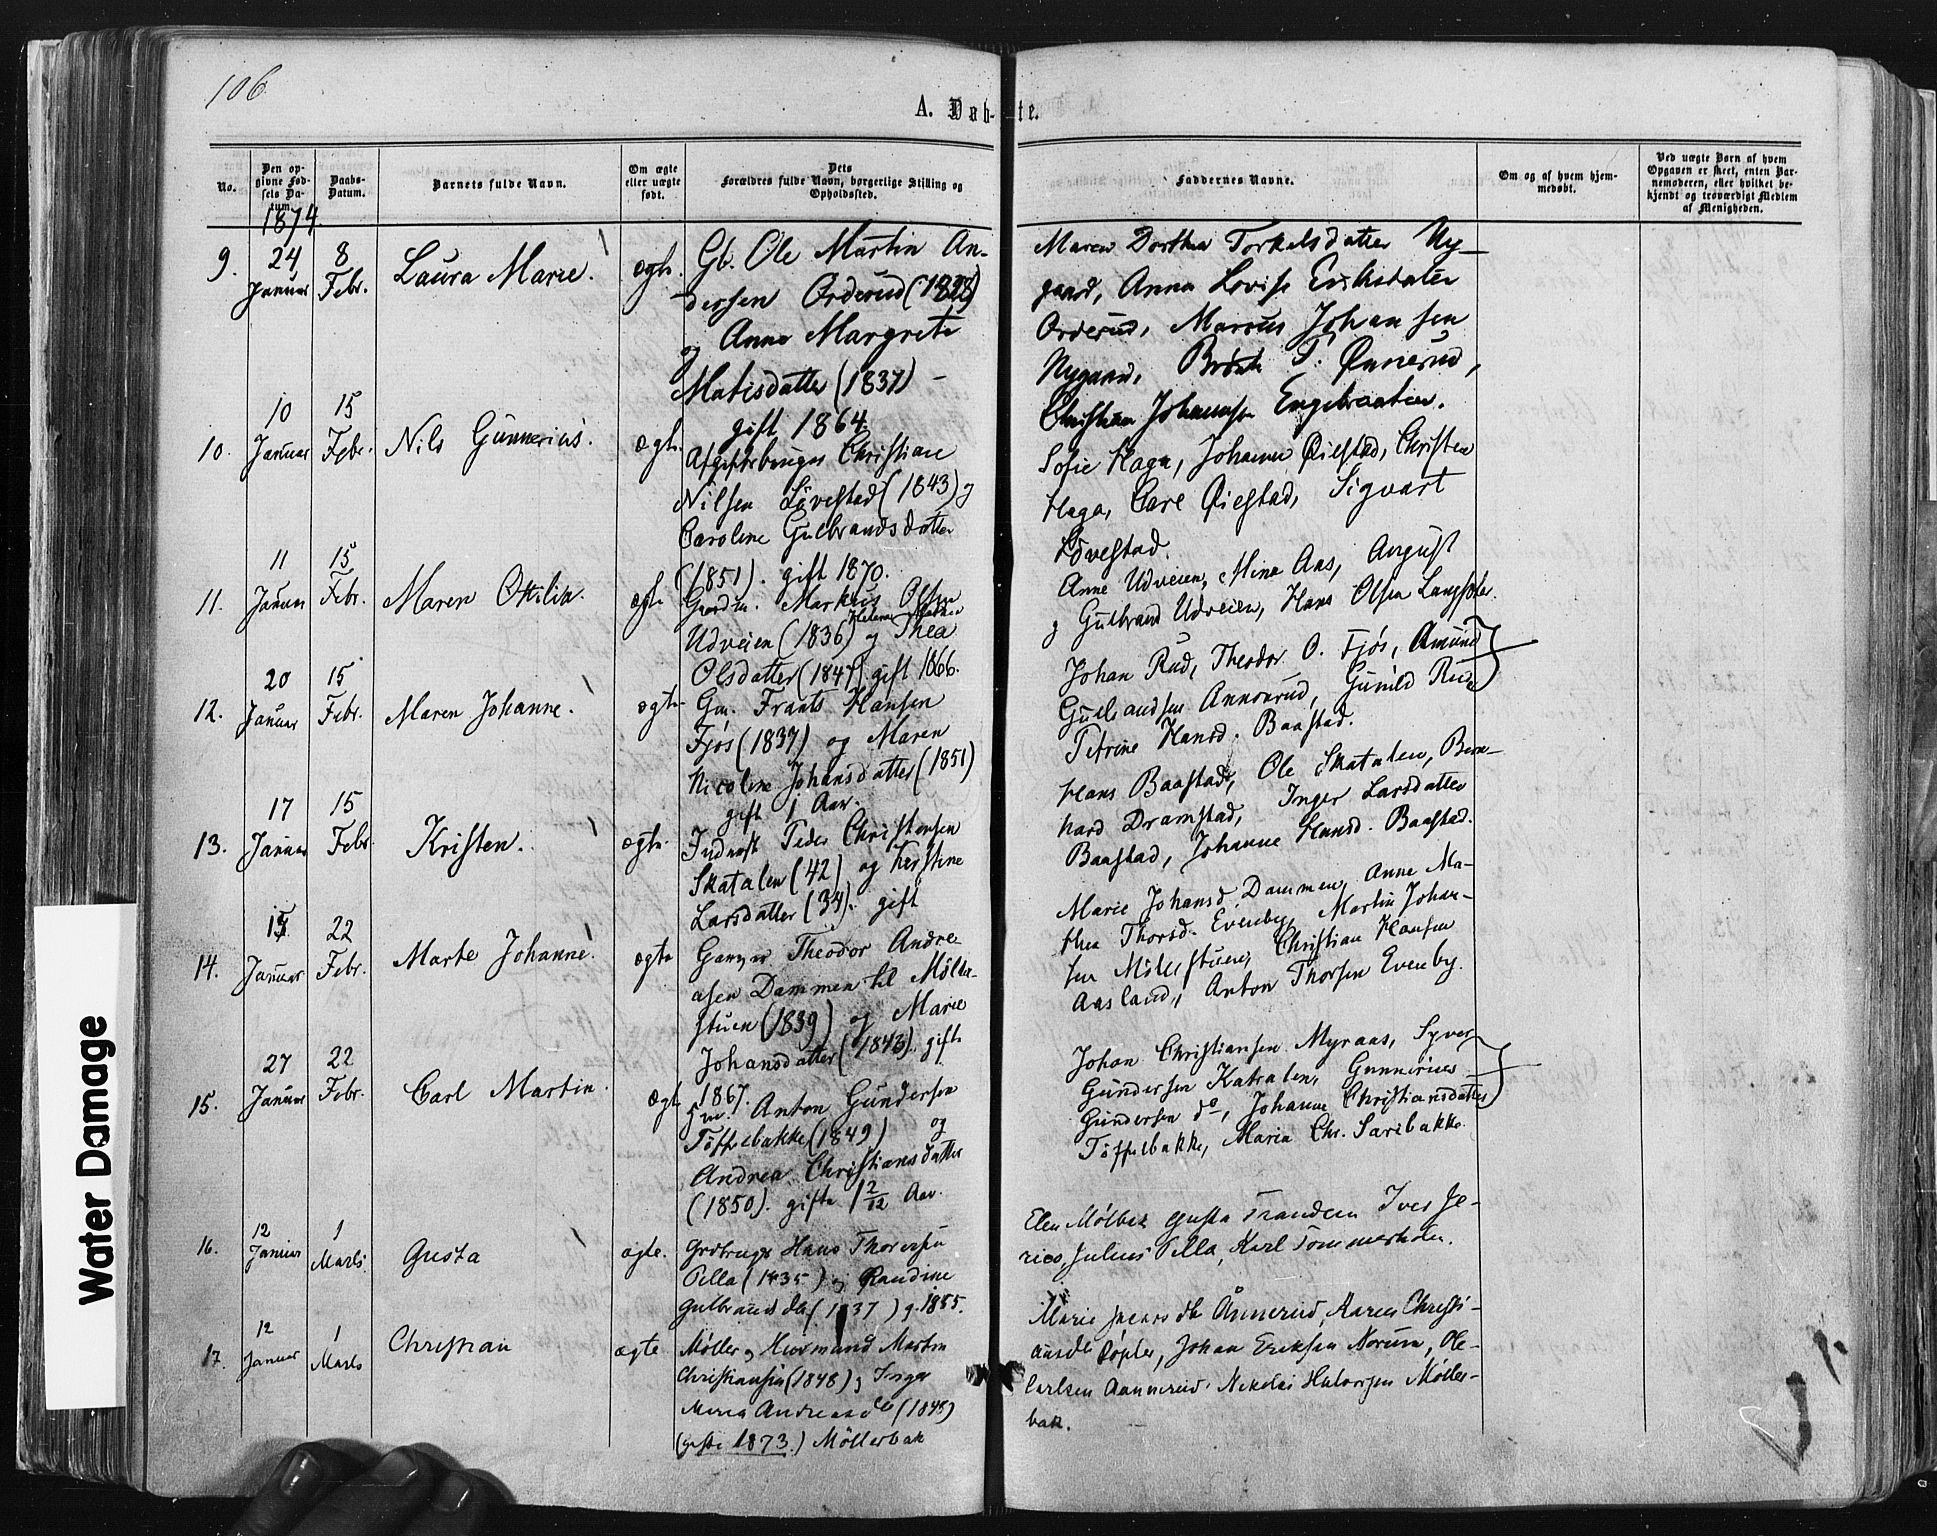 106
A. Døb-te.
No.
Den op-
givne Fød-
sels Da-
tum.
Daabs-
Datum.
Barnets fulde Navn.
Om ægte
eller uægte
født.
Dets
Forældres fulde Navn, borgerlige Stilling og
Opholdssted.
Faddernes Navne.
Om og af hvem hjem-
medøbt.
Ved uægte Børn af hvem
Opgaven er skeet, enten Bar-
nemoderen, eller hvilket be-
kjendt og troværdigt Medlem
af Menigheden.
1874
9.
24
Januar
8
Febr.
Laura Marie.
ægte.
Gb. Ole Martin An-
dersen Orderud (1828)
og Anne Margrete
Matisdatter (1837) -
gift 1864
Maren Dorthea Torkelsdatter Ny-
gaard, Anna Lovise Eriksdatter
Orderud, Marcus Johansen
Nygaard, T. Ønnerud,
Christian Johannsen Engebraaten.
10.
10
Januar
15
Febr.
Nils Gunnerius.
ægte.
Afgiftsbruger Christian
Nilsen Løvestad (1843) og
Caroline Gulbrandsdatter
(1851). gift 1870.
Sofie Haga, Johanne Øiestad, Christen
Haga, Carl Øiestad, Sigvart
Løvestad.
11.
11
Januar
15
Febr.
Maren Otilia.
ægte
Gaardm. Markus Olsen
Udveien (1836) og Thea
Olsdatter (1847) gift 1866.
Anne Udveien, Mina Aas, August
og Gulbrand Udveien, Hans Olsen
12.
20
Januar
15
Febr.
Maren Johanne.
ægte
Gm. Frants Hansen
Fjøs (1837) og Maren
Nicoline Johansdatter (1851)
gift 1 Aar.
Johan Rud, Theodor O. Fjøs, Amund
Gulbrandsen Annerud, Gunild Rud
Petrine Hansd. Baastad.
13.
17
Januar
15
Febr
Kristen.
ægte.
Inderst Peder Christensen
Skatalen (42) og Kerstine
Larsdatter (34). gift
Hans Baastad, Ole Skatalen, Bern-
hard Dramstad, Inger Larsdatter
Baastad, Johanne Hansd. Baastad.
14.
15
Januar
22
Febr.
Marte Johanne.
ægte
Theodor Andre-
asen Dammen til Møller-
stuen (1839) og Marie
Johansdatter (1843). gift
1867.
Marie Johansd. Dammen, Anne Ma-
thea Thorsd. Evenby, Martin Johan-
sen Møllerstuen, Christian Hansen
Aasland, Anton Thorsen Evenby.
15.
27
Januar
22
Febr.
Carl Martin.
ægte
Anton Gundersen
Tøffelbakke (1849) og
Andrea Christiansdatter
(1850). gifte 1 2/12 Aar.
Johan Christiansen Myraas, Syver
Gundersen Katralen, Gunnerius
Gundersen do, Johanne Christiansdatter
Tøffelbakke, Maria Chr. Saribakke.
16.
12
Januar
1
Marts.
Gusta
ægte.
Grdbruger Hans Thorersen
Pella (1835) og Randine
Gulbrandsdtr (1837) g. 1855.
Elen Mølbak Gusta Trandem Iver Je-
rico, Julius Pella, Karl Tommerholen.
17.
12
Januar
1
Marts
Christian
ægte
Møller og Husmand Martin
Christiansen (1848) og Inger
Maria Andreasd (1848)
(gifte 1873.) Møllerbak
Marie Jnaasdtr Ånnerud, Karen Christi-
ansdtr Løpler, Johan Eriksen Norum, Ole
Carlsen Aannerud, Nikolai Halvorsen Møller-
bak.
Water Damage